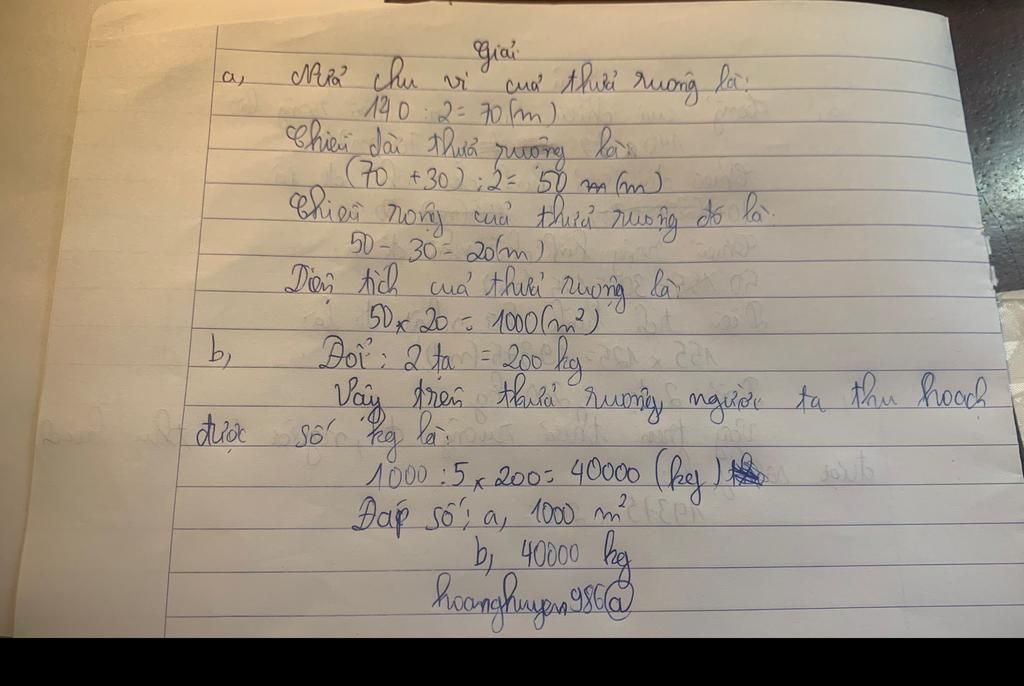 Giải
a, Nửa chu vi cuả thửa ruộng là:
140 : 2 = 70 (m)
Chiều dài thửa ruộng là:
(70 + 30) : 2 = 50 m (m)
Chiều rộng cuả thửa ruộng đó là:
50 - 30 = 20 (m)
Diện tích cuả thửa ruộng là:
50 x 20 = 1000 (m²)
b, Đổi : 2 tạ = 200 kg
Vậy trên thửa ruộng người ta thu hoạch
được số kg là:
1000 : 5 x 200 = 40000 (kg)
Đáp số : a, 1000 m²
b, 40000 kg
hoanghuyen986@